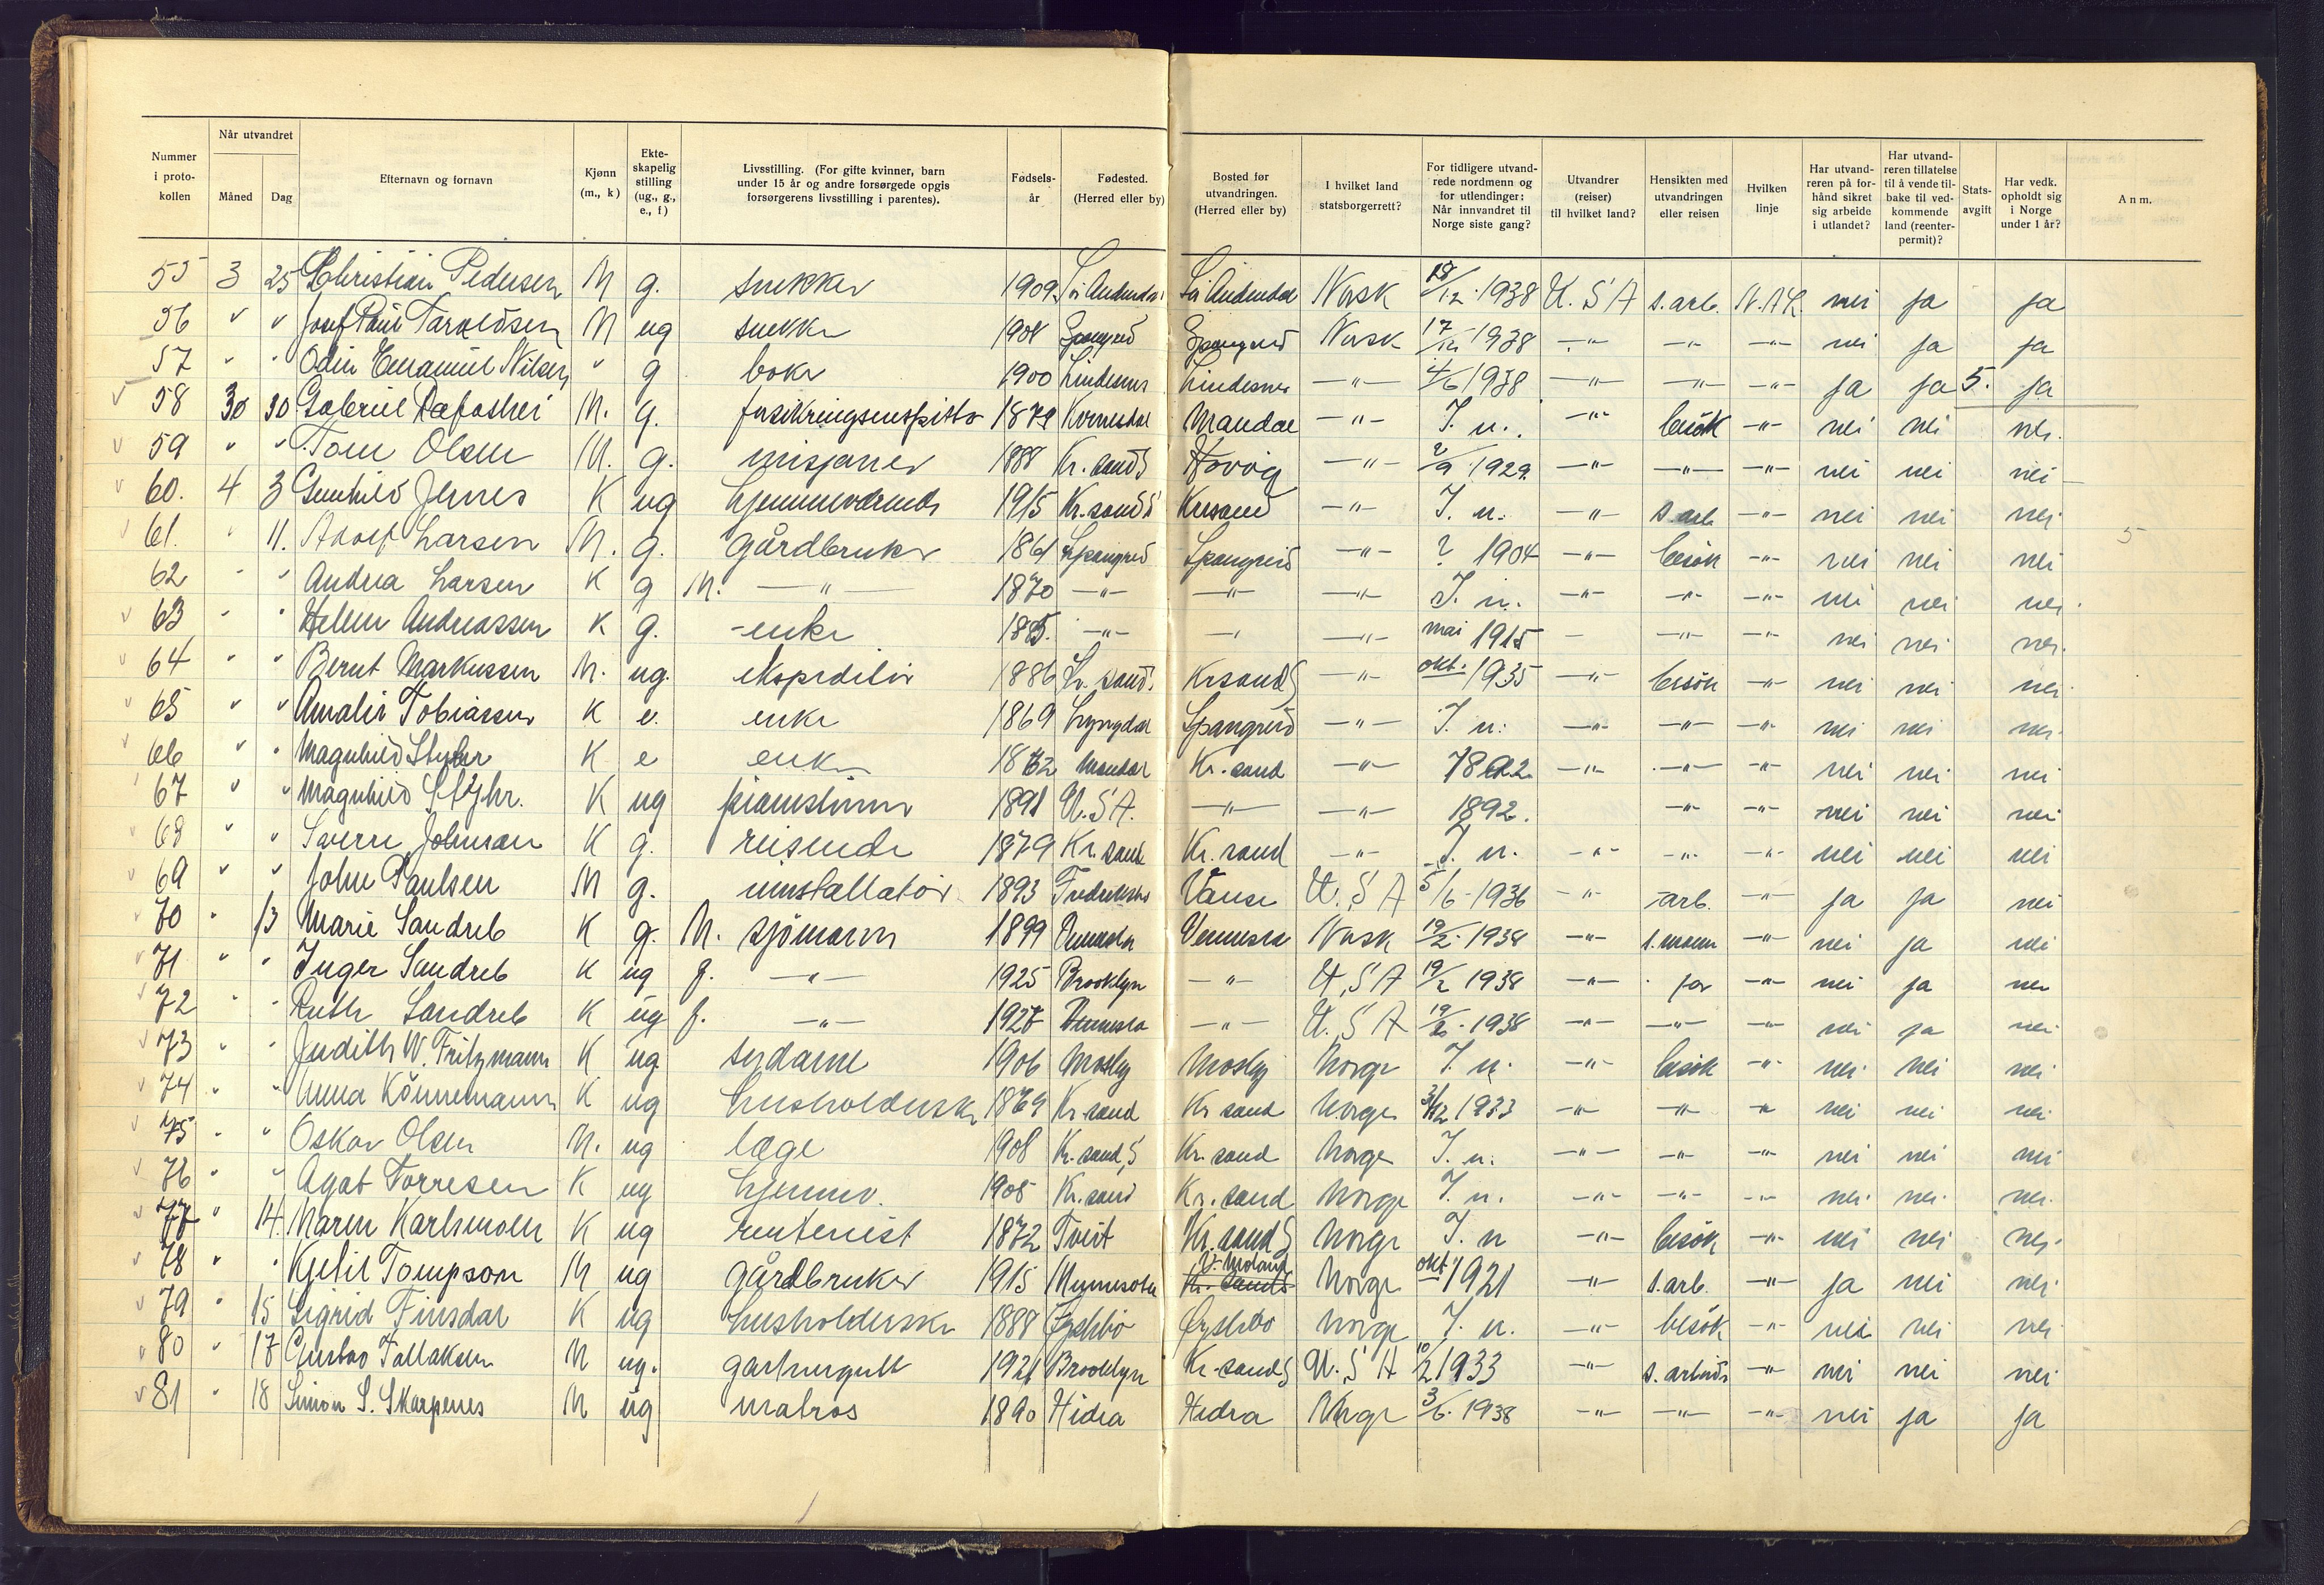 Nummer i proto-kollen | Når utvandret Måned Dag | Efternavn og fornavn | Kjønn (m., k) | Ekte-skapelig stilling (ug., g., e., f) | Livsstilling. (For gifte kvinner, barn under 15 år og andre forsørgede opgis forsørgerens livsstilling i parentes). | Fødsels-år | Fødested. (Herred eller by) | Bosted før utvandringen. (Herred eller by) | I hvilket land statsborgerrett? | For tidligere utvand-rede nordmenn og for utlendinger: Når innvandret til Norge siste gang? | Utvandrer (reiser) til hvilket land? | Hensikten med utvandringen eller reisen | Hvilken linje | Har utvand-reren på for-hånd sikret sig arbeide i utlandet? | Har utvand-reren tillatelse til å vende til-bake til ved-kommende land (reenter-permit)? | Stats-avgift | Har vedk. opholdt sig i Norge under 1 år? | Anm.
55 3 25 Christian Pedersen M g. snekker 1909 Sør Audnedal Sør Audnedal Norsk 18/12 1938 U.S.A s.arb. N.A.L. nei ja ja
56 " " Josef Paul Taraldsen M ug snekker 1908 Spangreid Spangreid Norsk 17/12 1938 -"- -"- -"- nei ja ja
57 " " Odin Emanuel Nilsen " g boker 1900 Lindesnes Lindesnes -"- 4/6 1938 -"- -"- -"- ja ja 5. ja
58 30 30 Gabriel M. g. 1879 Kvinesdal Mandal -"- I. u. -"- besøk -"- nei nei nei
59 " " Tom Olsen M. g. misjonær 1888 Kr.sand S Høvåg -"- 2/9 1929 -"- -"- -"- nei nei nei
60. 4 3 Gunhild Jernes K ug hjemmeværende 1915 Kr.sand S Krsand -"- I. u. -"- s.arb -"- nei nei nei
61. " 11. Adolf Larsen M. g. gårdbruker 1861 Spangreid Spangreid -"- ? 1904 -"- besøk -"- nei nei nei 5
62 " " Andrea Larsen K g M. -"- 1870 -"- -"- -"- I. u. -"- -"- -"- nei nei nei
63 " " Helen Andreassen K g. enke -"- - -"- mai 1915 - -"- -"- nei nei nei
64 " " Bernt Markussen M. ug. ekspeditør 1886 Kr. sand. Krsand S -"- okt. 1935 -"- besøk -"- nei nei nei
65 " " Amalie Tobiassen K e. enke 1869 Lyngdal Spangreid -"- I. u. -"- -"- -"- nei nei nei
66 " " Magnhild Styhr K e enke Mandal Kr. sand -"- -"- -"- -"- nei nei nei
67 " " Magnhild Styhr. K ug pianistinne 1891 U.S.A. -"- -"- 1892. -"- -"- nei nei nei
68 " " Sverre Johnsen K g. reisende 1879 Kr. sand Kr. sand -"- I. u. -"- -"- -"- nei nei nei
69 " " John Paulsen M g. innstallatør 1893 Fredrikstad Vanse U.S.A 5/6 1936 -"- arb. -"- ja ja nei
70 " 13 Marie Sandreb K g. M. sjömann 1899 Vennesla Vennesla Norsk 19/2 1938 -"- t.mann -"- nei ja nei
71 " " Inger Sandreb K ug f. -"- 1925 Brooklyn -"- U.S.A 19/2 1938 -"- far -"- nei ja nei
72 " " Ruth Sandreb K ug f. -"- 1927 Vennesla -"- U.S.A 19/2 1938 -"- -"- -"- nei ja nei
73 " " Judith W. Fritzmann K ug sydame 1906 Mosby Mosby Norge I. u. -"- besøk -"- nei nei nei
74 " " Anna Könnemann K ug husholderske 1869 Kr.sand Kr sand Norge 1933 -"- -"- -"- nei nei nei
75 " " Oskar Olsen M. ug læge 1908 Kr. sand S Kr. sand Norge I. u. -"- -"- -"- nei nei nei
76 " " Agat Torresen K ug hjemmv. 1905 Kr. sand Kr. sand Norge I. u. -"- -"- -"- nei nei nei
77 " 14. Maren Karlsmoen K ug rentenist 1872 Tveit Kr.sand S Norge I. u -"- besøk -"- nei nei nei
78 " " Kjetil Tompson M ug gårdbruker 1915 Minnesota Kr. sand S V-Moland Norge okt 1921 -"- s.arb. -"- ja nei nei
79 " 15 Sigrid Finsdal K ug husholderske 1888 Øyslebø Øyslebø Norge I. u. -"- besøk -"- nei nei nei
80 " 17 Gustav Tallaksen M ug. gartnergutt 1921 Brooklyn Kr.sand S U.S.A 10/2 1933 -"- s. arbeide -"- nei nei nei
81 " 18 Simon S. Skarpenes M ug matros 1890 Hidra Hidra Norge 3/6. 1938 -"- -"- -"- nei ja ja